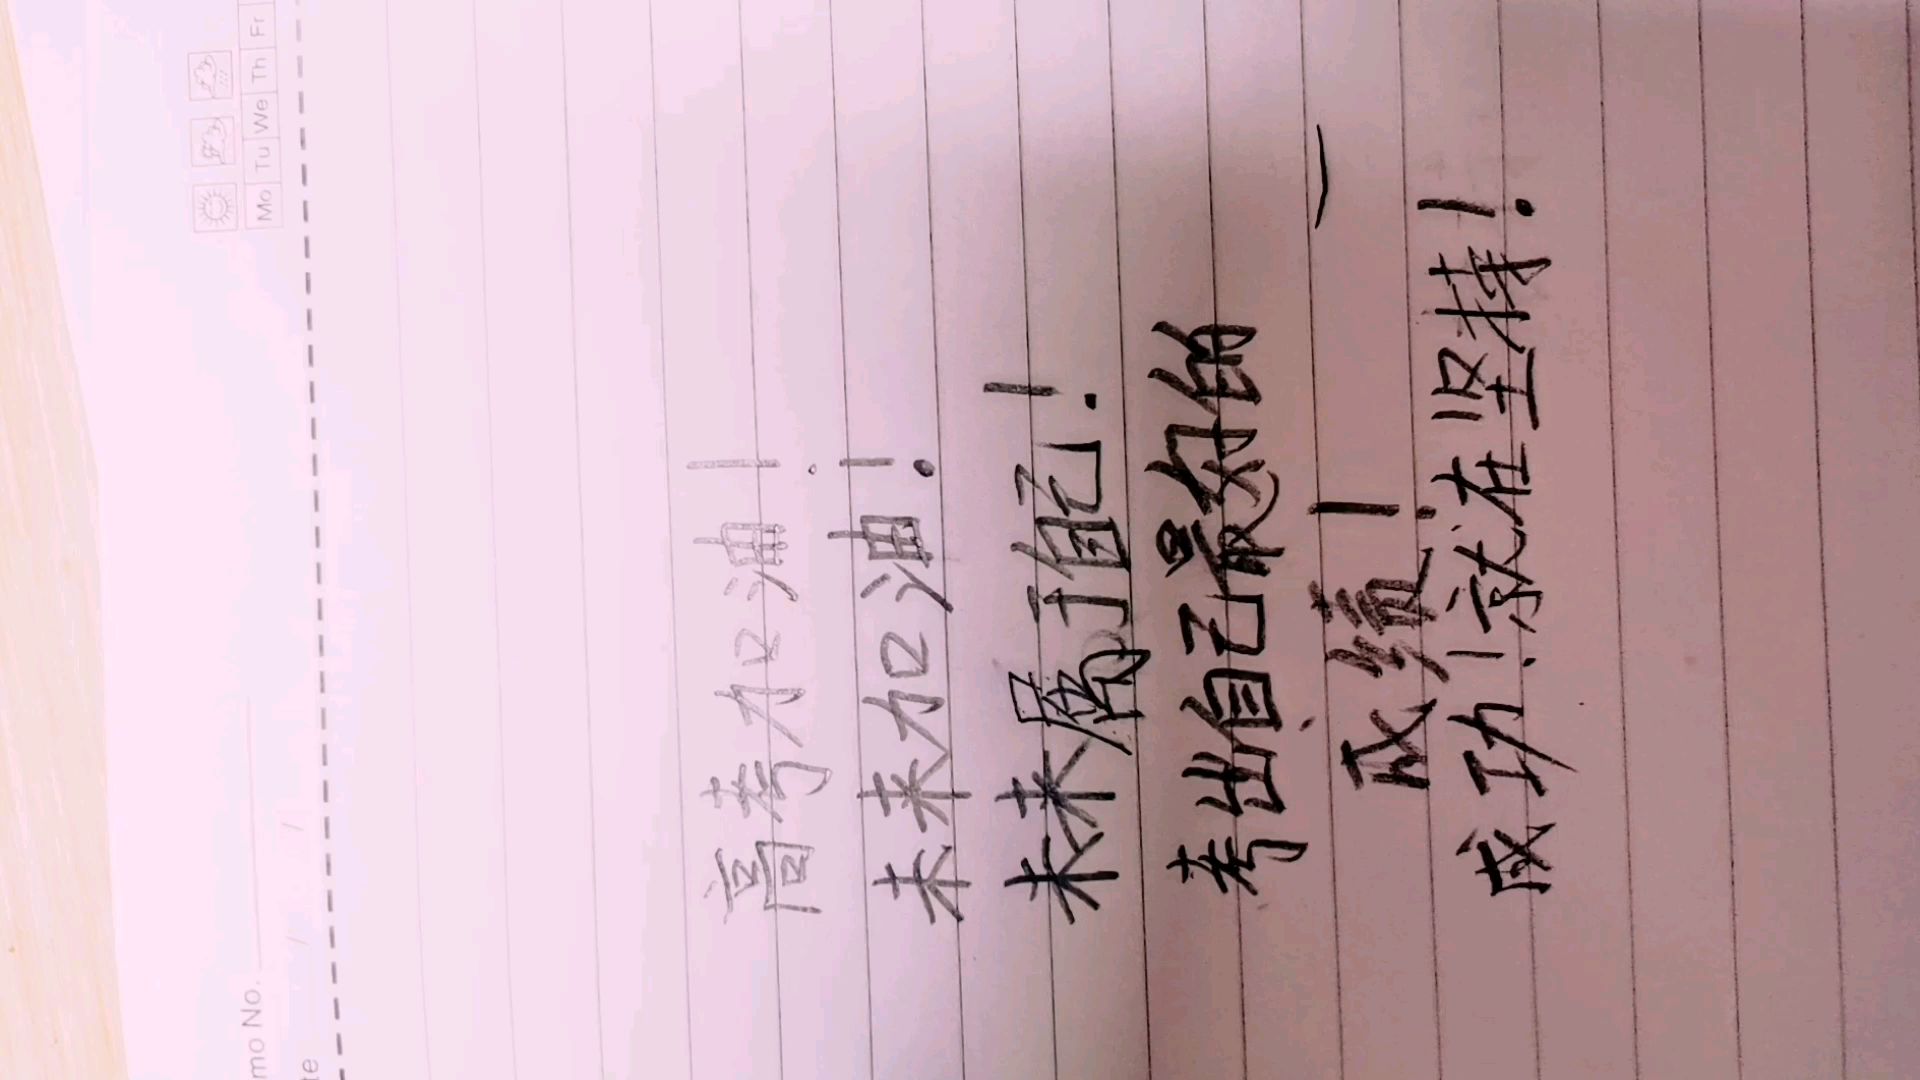 Mo Tu We Th Fr
mo No.
te / /
高考加油！
未来加油！
未来属于自己！
考出自己最好的
成绩！
成功！就在坚持！